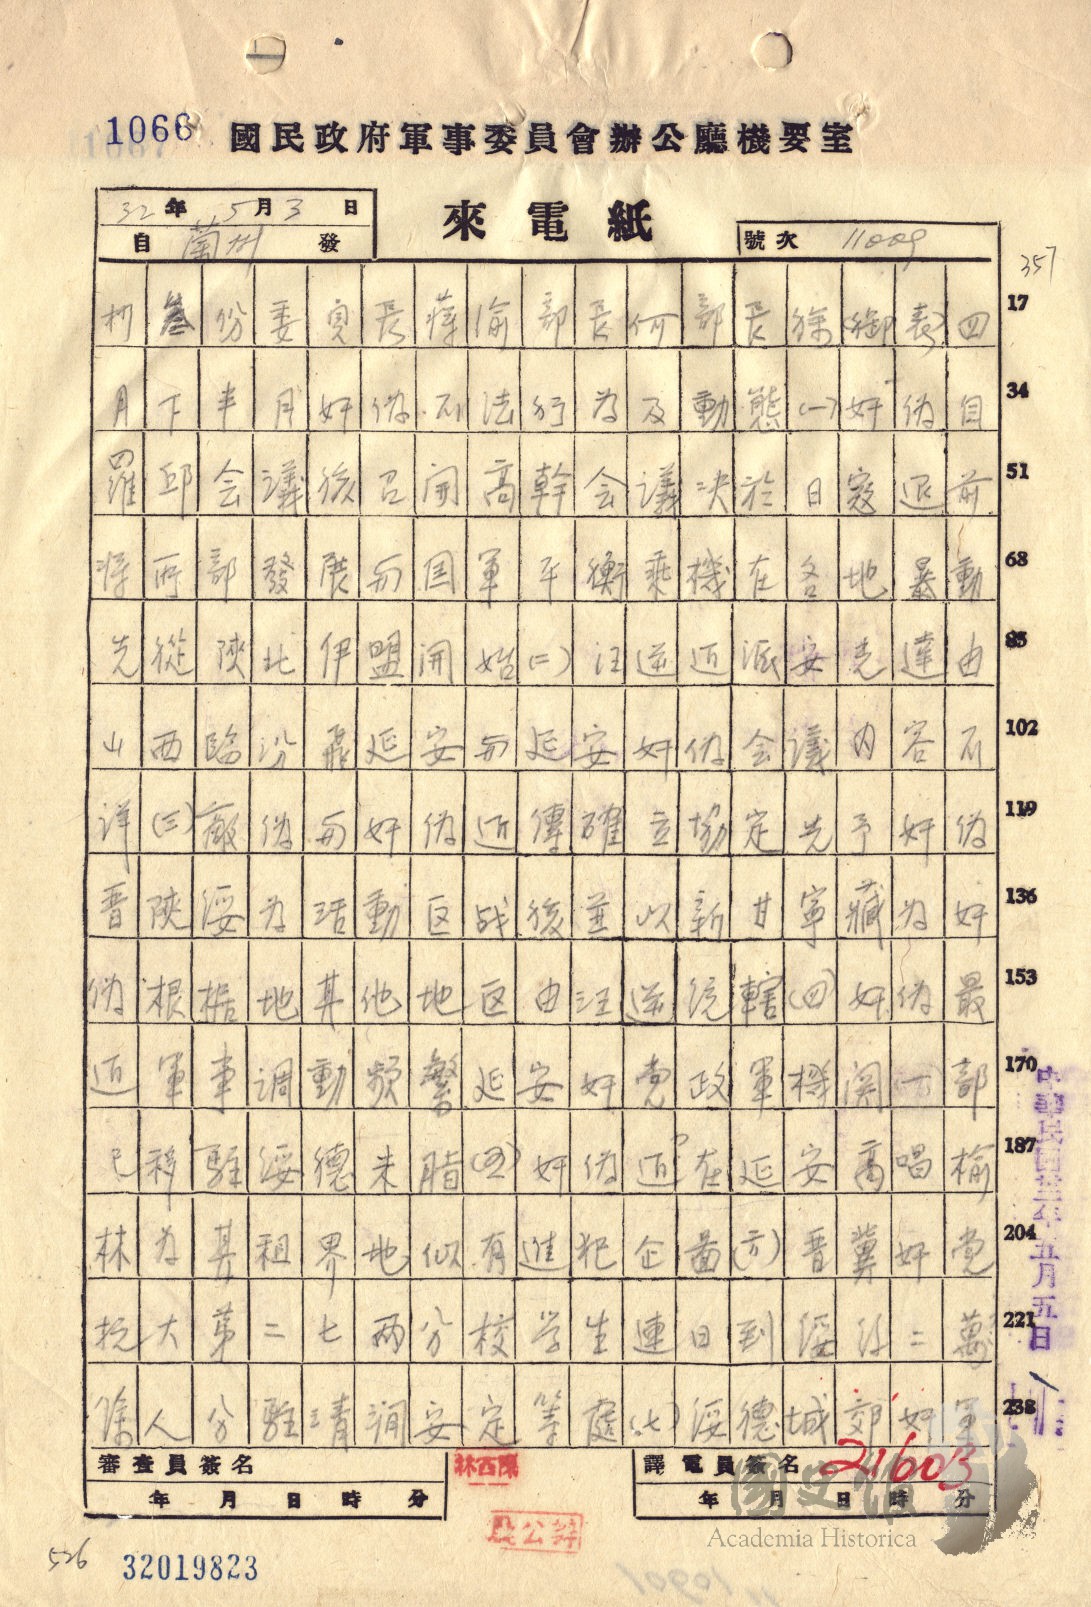 1066
國民政府軍事委員會辦公廳機要室
來電紙
32年5月3日
自蘭州發
號次 11009
357
份委員長蔣渝部長何部長徐(御表)四 17
月下半月奸偽不法行為及動態(一)奸偽自 34
羅邱会議後召開高幹会議决於日寇退前 51
將所部發展与国軍平衡乘機在各地暴動 68
先從陝北伊盟開始(二)汪逆近派安克達由 85
山西臨汾飛延安与延安奸偽会議内容不 102
詳(三)敵偽与奸偽近傳確立協定先予奸偽 119
晋陝綏為活動区战後並以新甘寧藏為奸 136
偽根据地其他地区由汪逆統轄(四)奸偽最 153
近軍事調動頻繁延安奸党政軍機関一部 170
已移駐綏德米脂(五)奸偽近在延安高唱榆 187
林為其租界地似有進犯企圖(六)晋冀奸党 204
抗大第二七兩分校学生連日到綏約二萬 221
餘人分駐清澗安定等處(七)綏德城郊奸軍 238
審查員簽名
年 月 日 時 分
林西陳
譯電員簽名
年 月 日 時 分
21603
中華民國卅二年五月五日
國史館
Academia Historica
526
32019823